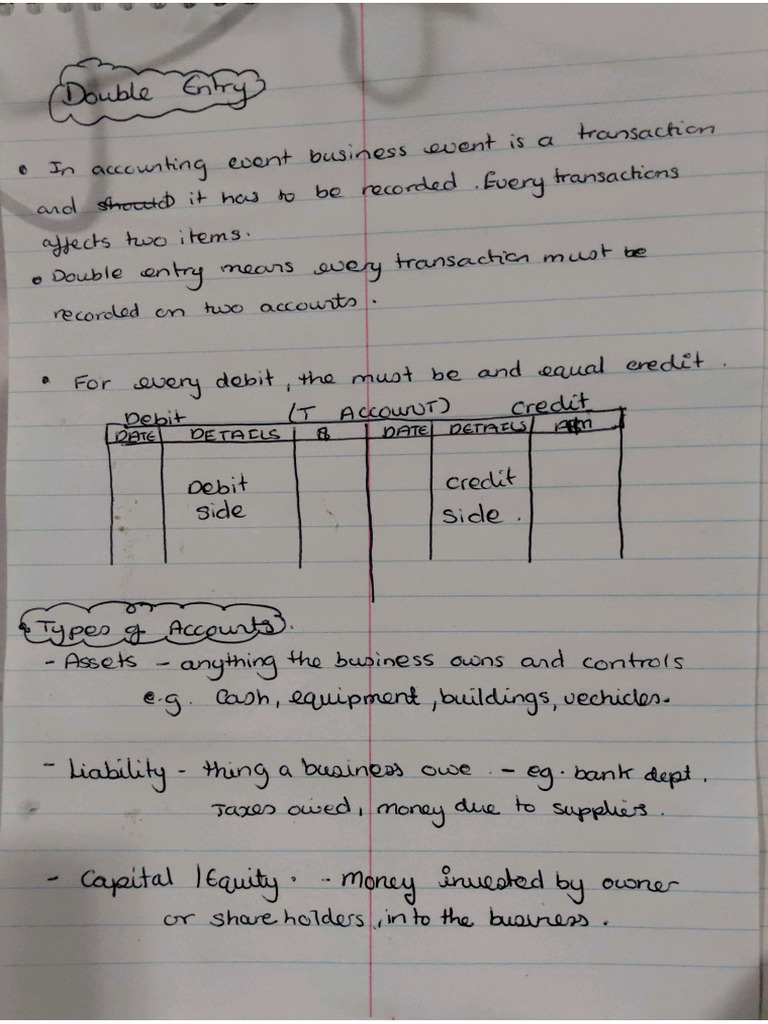 Double Entry
• In accounting event business event is a transaction
and should it has to be recorded. Every transactions
affects two items.
• Double entry means every transaction must be
recorded on two accounts.
• For every debit, the must be and equal credit.
Debit (T ACCOUNT) Credit
DATE DETAILS $ DATE DETAILS
Debit credit
side side.
Types of Accounts.
- Assets - anything the business owns and controls
e.g. Cash, equipment, buildings, vechicles.
- Liability - thing a business owe. - eg. bank dept.
Taxes owed, money due to suppliers.
- Capital / Equity. - Money invested by owner
or share holders, in to the business.